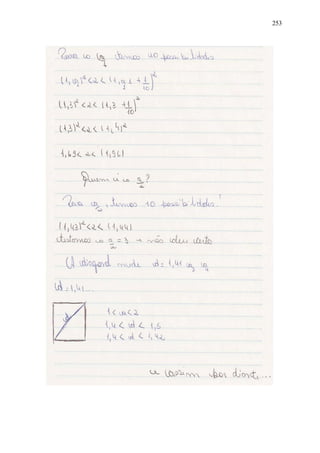 253
Para o a₁ temos 10 possibilidades
(1, a₁)² < 2 < (1, a₁ + 1/10)²
(1,3)² < 2 < (1,3 + 1/10)²
(1,3)² < 2 < (1,4)²
1,69 < 2 < (1,96)
Quem é o a₂?
Para a₂, temos 10 possibilidades!
(1,43)² < 2 < (1,44)
testamos o a₂ = 3 → não deu certo
A diagonal mede d = 1,41 a₃ a₄
d = 1,41...
d
1 < d < 2
1,4 < d < 1,5
1,4 < d < 1,42
e assim por diante...